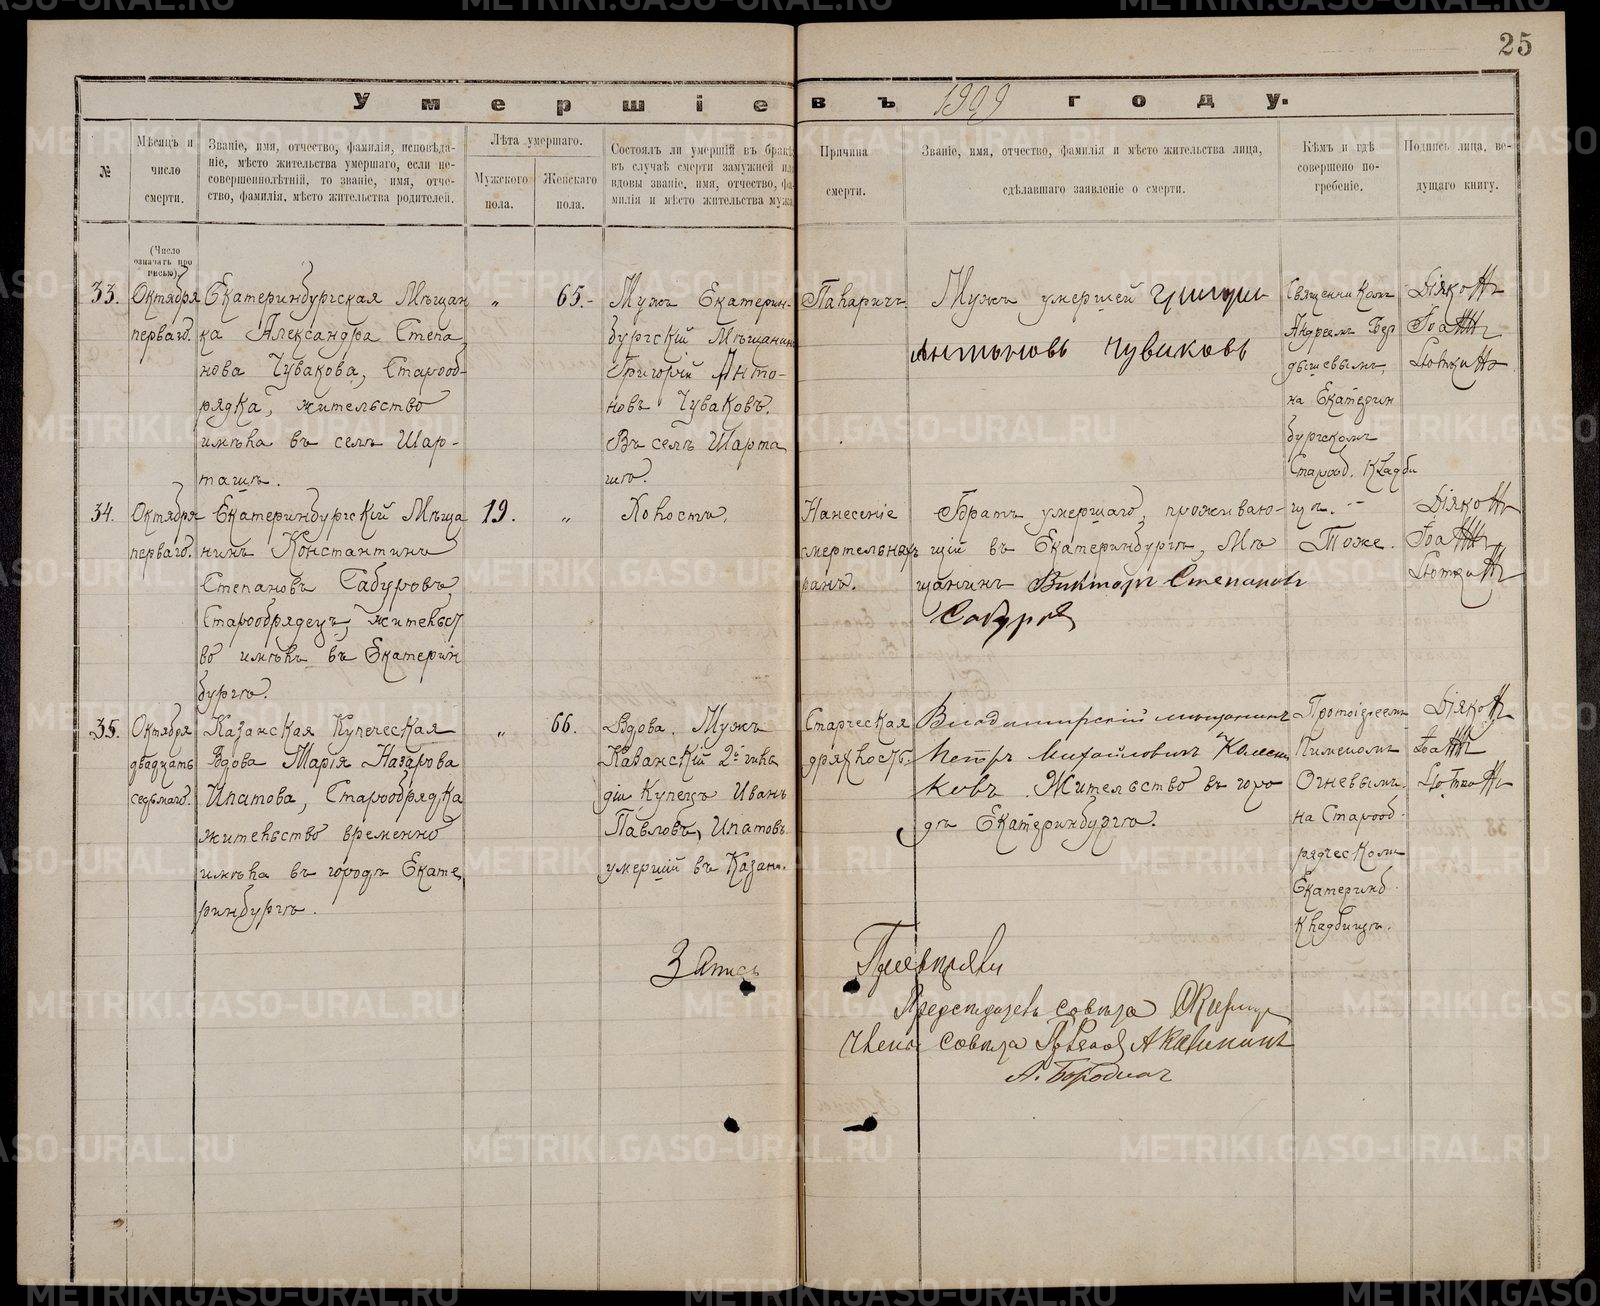 25
Умершіе въ 1909 году.
№
Мѣсяцъ и
число
смерти.
Званіе, имя, отчество, фамилія, исповѣда-
ніе, мѣсто жительства умершаго, если не-
совершеннолѣтній, то званіе, имя, отче-
ство, фамилія, мѣсто жительства родителей.
Лѣта умершаго.
Мужского
пола.
Женскаго
пола.
Состоялъ ли умершій въ бракѣ,
въ случаѣ смерти замужней или
вдовы званіе, имя, отчество, фа-
милія и мѣсто жительства мужа.
Причина
смерти.
Званіе, имя, отчество, фамилія и мѣсто жительства лица,
сдѣлавшаго заявленіе о смерти.
Кѣмъ и гдѣ
совершено по-
гребеніе.
Подпись лица, ве-
дущаго книгу.
(Число
означать про
писью)
33.
Октября
перваго.
Екатеринбургская Мѣщан
ка Александра Степа
нова Чувакова, Старооб-
рядка, жительство
имѣла въ селѣ Шар-
ташѣ.
„
65.-
Мужъ Екатерин-
бургскій Мѣщанинъ
Григорій Анто-
новъ Чуваковъ.
Въ селѣ Шарта
шѣ.
Мужъ умершей Григори
Антоновъ Чуваковъ
Священникомъ
Андреемъ Бер
дышевымъ,
на Екатерин
бургскомъ
Старооб. Кладби
щѣ. -
Діяконъ
Іоаннъ
34.
Октября
перваго.
Екатеринбургскій Мѣща
нинъ Константинъ
Степановъ Сабуровъ,
Старообрядецъ, жительст
во имѣлъ въ Екатерин
бургѣ.
19.
„
Холостъ.
Нанесеніе
смертельныхъ
ранъ.
Братъ умершаго, проживаю-
щій въ Екатеринбургѣ, Мѣ
щанинъ Викторъ Степановъ
Сабуровъ
Тоже.
Діяконъ
Іоаннъ
35.
Октября
двадцать
седьмаго.
Казанская Купеческая
Вдова Марія Назарова
Ипатова, Старообрядка
жительство временно
имѣла въ городѣ Екате
ринбургѣ.
„
66.
Вдова. Мужъ
Казанскій 2й гиль
діи Купецъ Иванъ
Павловъ Ипатовъ
умершій въ Казани.
Старческая
дряхлость.
Владимирскій мѣщанинъ
Петръ Михайловичъ
Жительство въ горо
дѣ Екатеринбургѣ.
Протоіереемъ
Пименомъ
Огневымъ,
на Старооб
рядческомъ
Екатеринб.
кладбищѣ.
Діяконъ
Іоаннъ
Запись
Провѣряли
Предсѣдатель совѣта
Члены совѣта
А. Бородинъ
METRIKI.GASO-URAL.RU